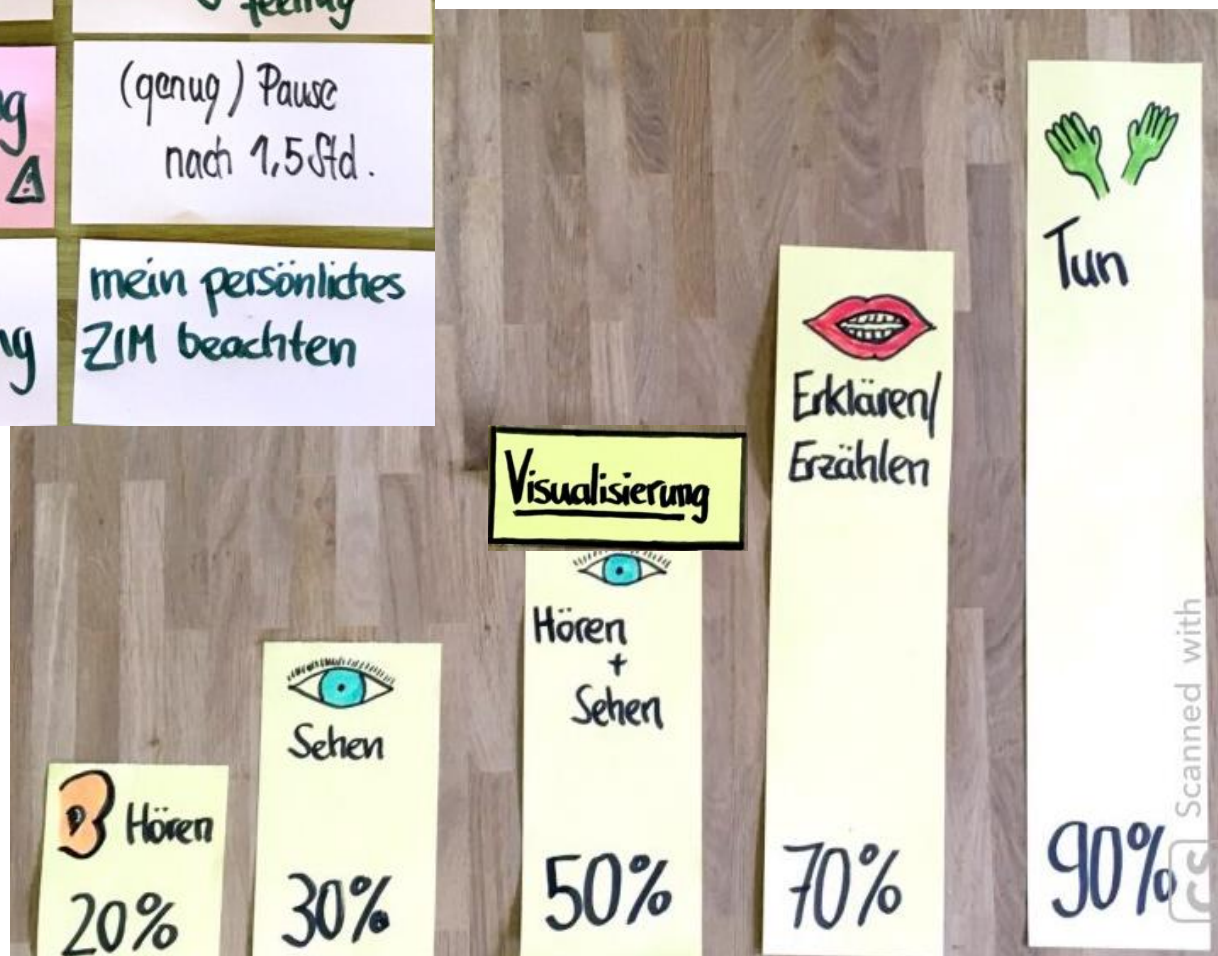 feeling
(genug) Pause
nach 1,5 Std.
mein persönliches
ZIM beachten
Visualisierung
Hören
20%
Sehen
30%
Hören
+
Sehen
50%
Erklären/
Erzählen
70%
Tun
90%
CS Scanned with